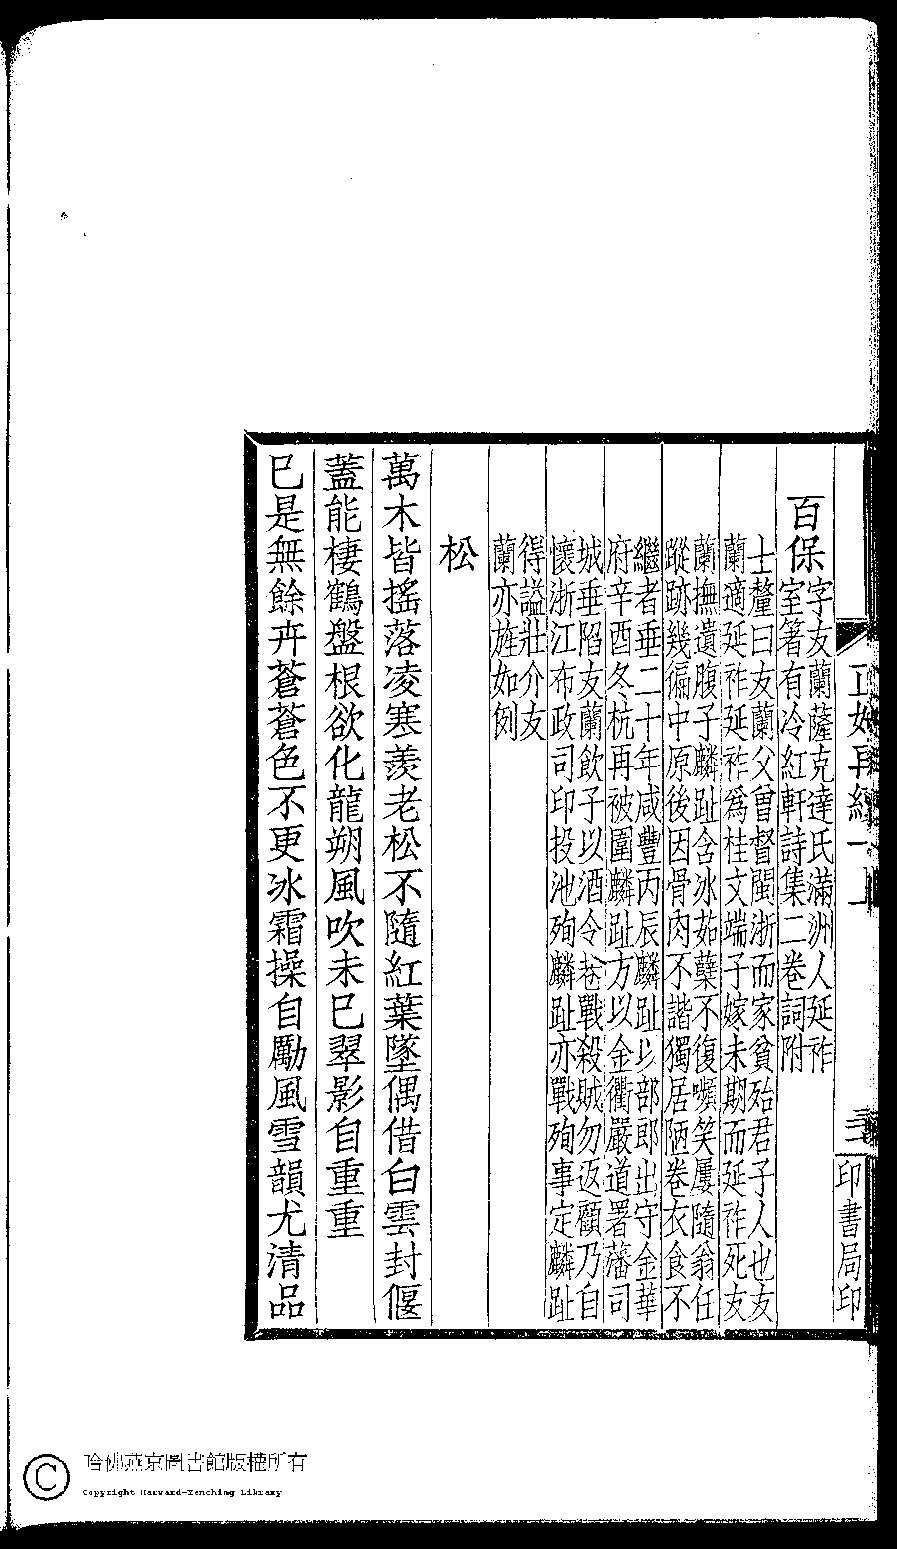 正始再續一上
三
印書局印
百保
字友蘭薩克達氏滿洲人延祚
室箸有冷紅軒詩集二卷詞附
士釐曰友蘭父曾督閩浙而家貧殆君子人也友
蘭適延祚延祚爲桂文端子嫁未期而延祚死友
蘭撫遺腹子麟趾含冰茹蘖不復嚬笑屢隨翁任
蹤跡幾徧中原後因骨肉不諧獨居陋巷衣食不
繼者垂二十年咸豐丙辰麟趾以部郎出守金華
府辛酉冬杭再被圍麟趾方以金衢嚴道署藩司
城垂陷友蘭飲子以酒令巷戰殺賊勿返顧乃自
懷浙江布政司印投池殉麟趾亦戰殉事定麟趾
得謚壯介友
蘭亦旌如例
松
萬木皆搖落凌寒羨老松不隨紅葉墜偶借白雲封偃
蓋能棲鶴盤根欲化龍朔風吹未已翠影自重重
已是無餘卉蒼蒼色不更冰霜操自勵風雪韻尤清品
哈佛燕京圖書館版權所有
Copyright Harvard-Yenching Library